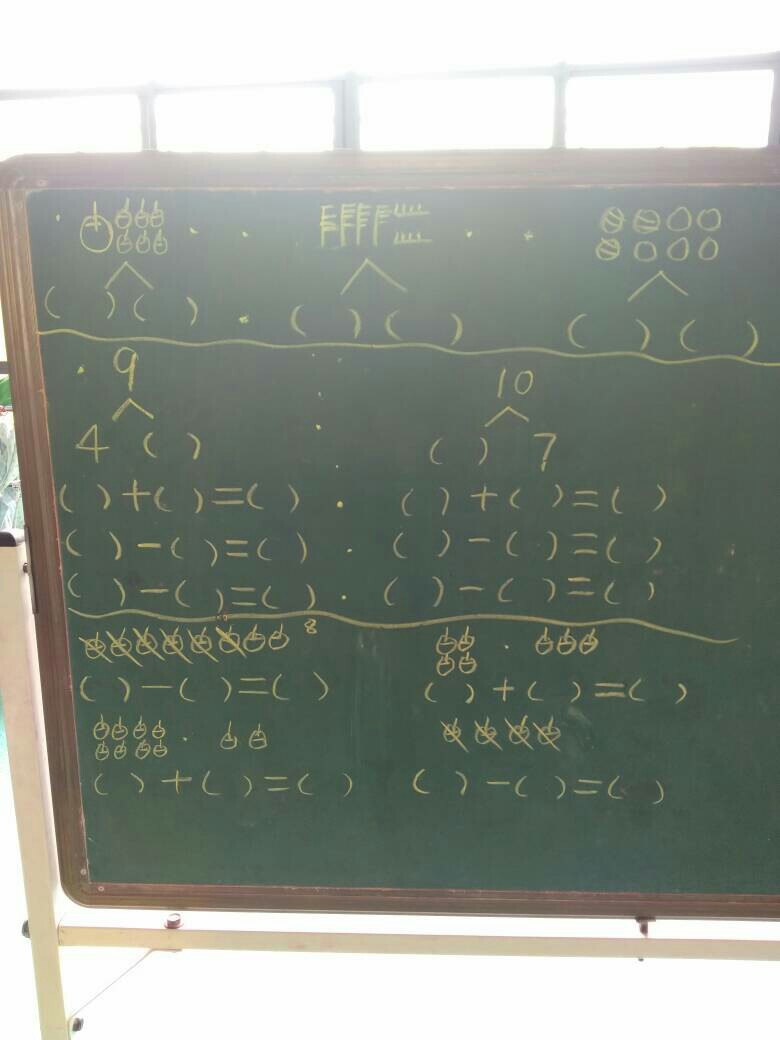 ( ) ( ) ( ) ( ) ( ) ( )
9 10
4 ( ) ( ) 7
( ) + ( ) = ( ) ( ) + ( ) = ( )
( ) - ( ) = ( ) ( ) - ( ) = ( )
( ) - ( ) = ( ) ( ) - ( ) = ( )
8
( ) - ( ) = ( ) ( ) + ( ) = ( )
( ) + ( ) = ( ) ( ) - ( ) = ( )